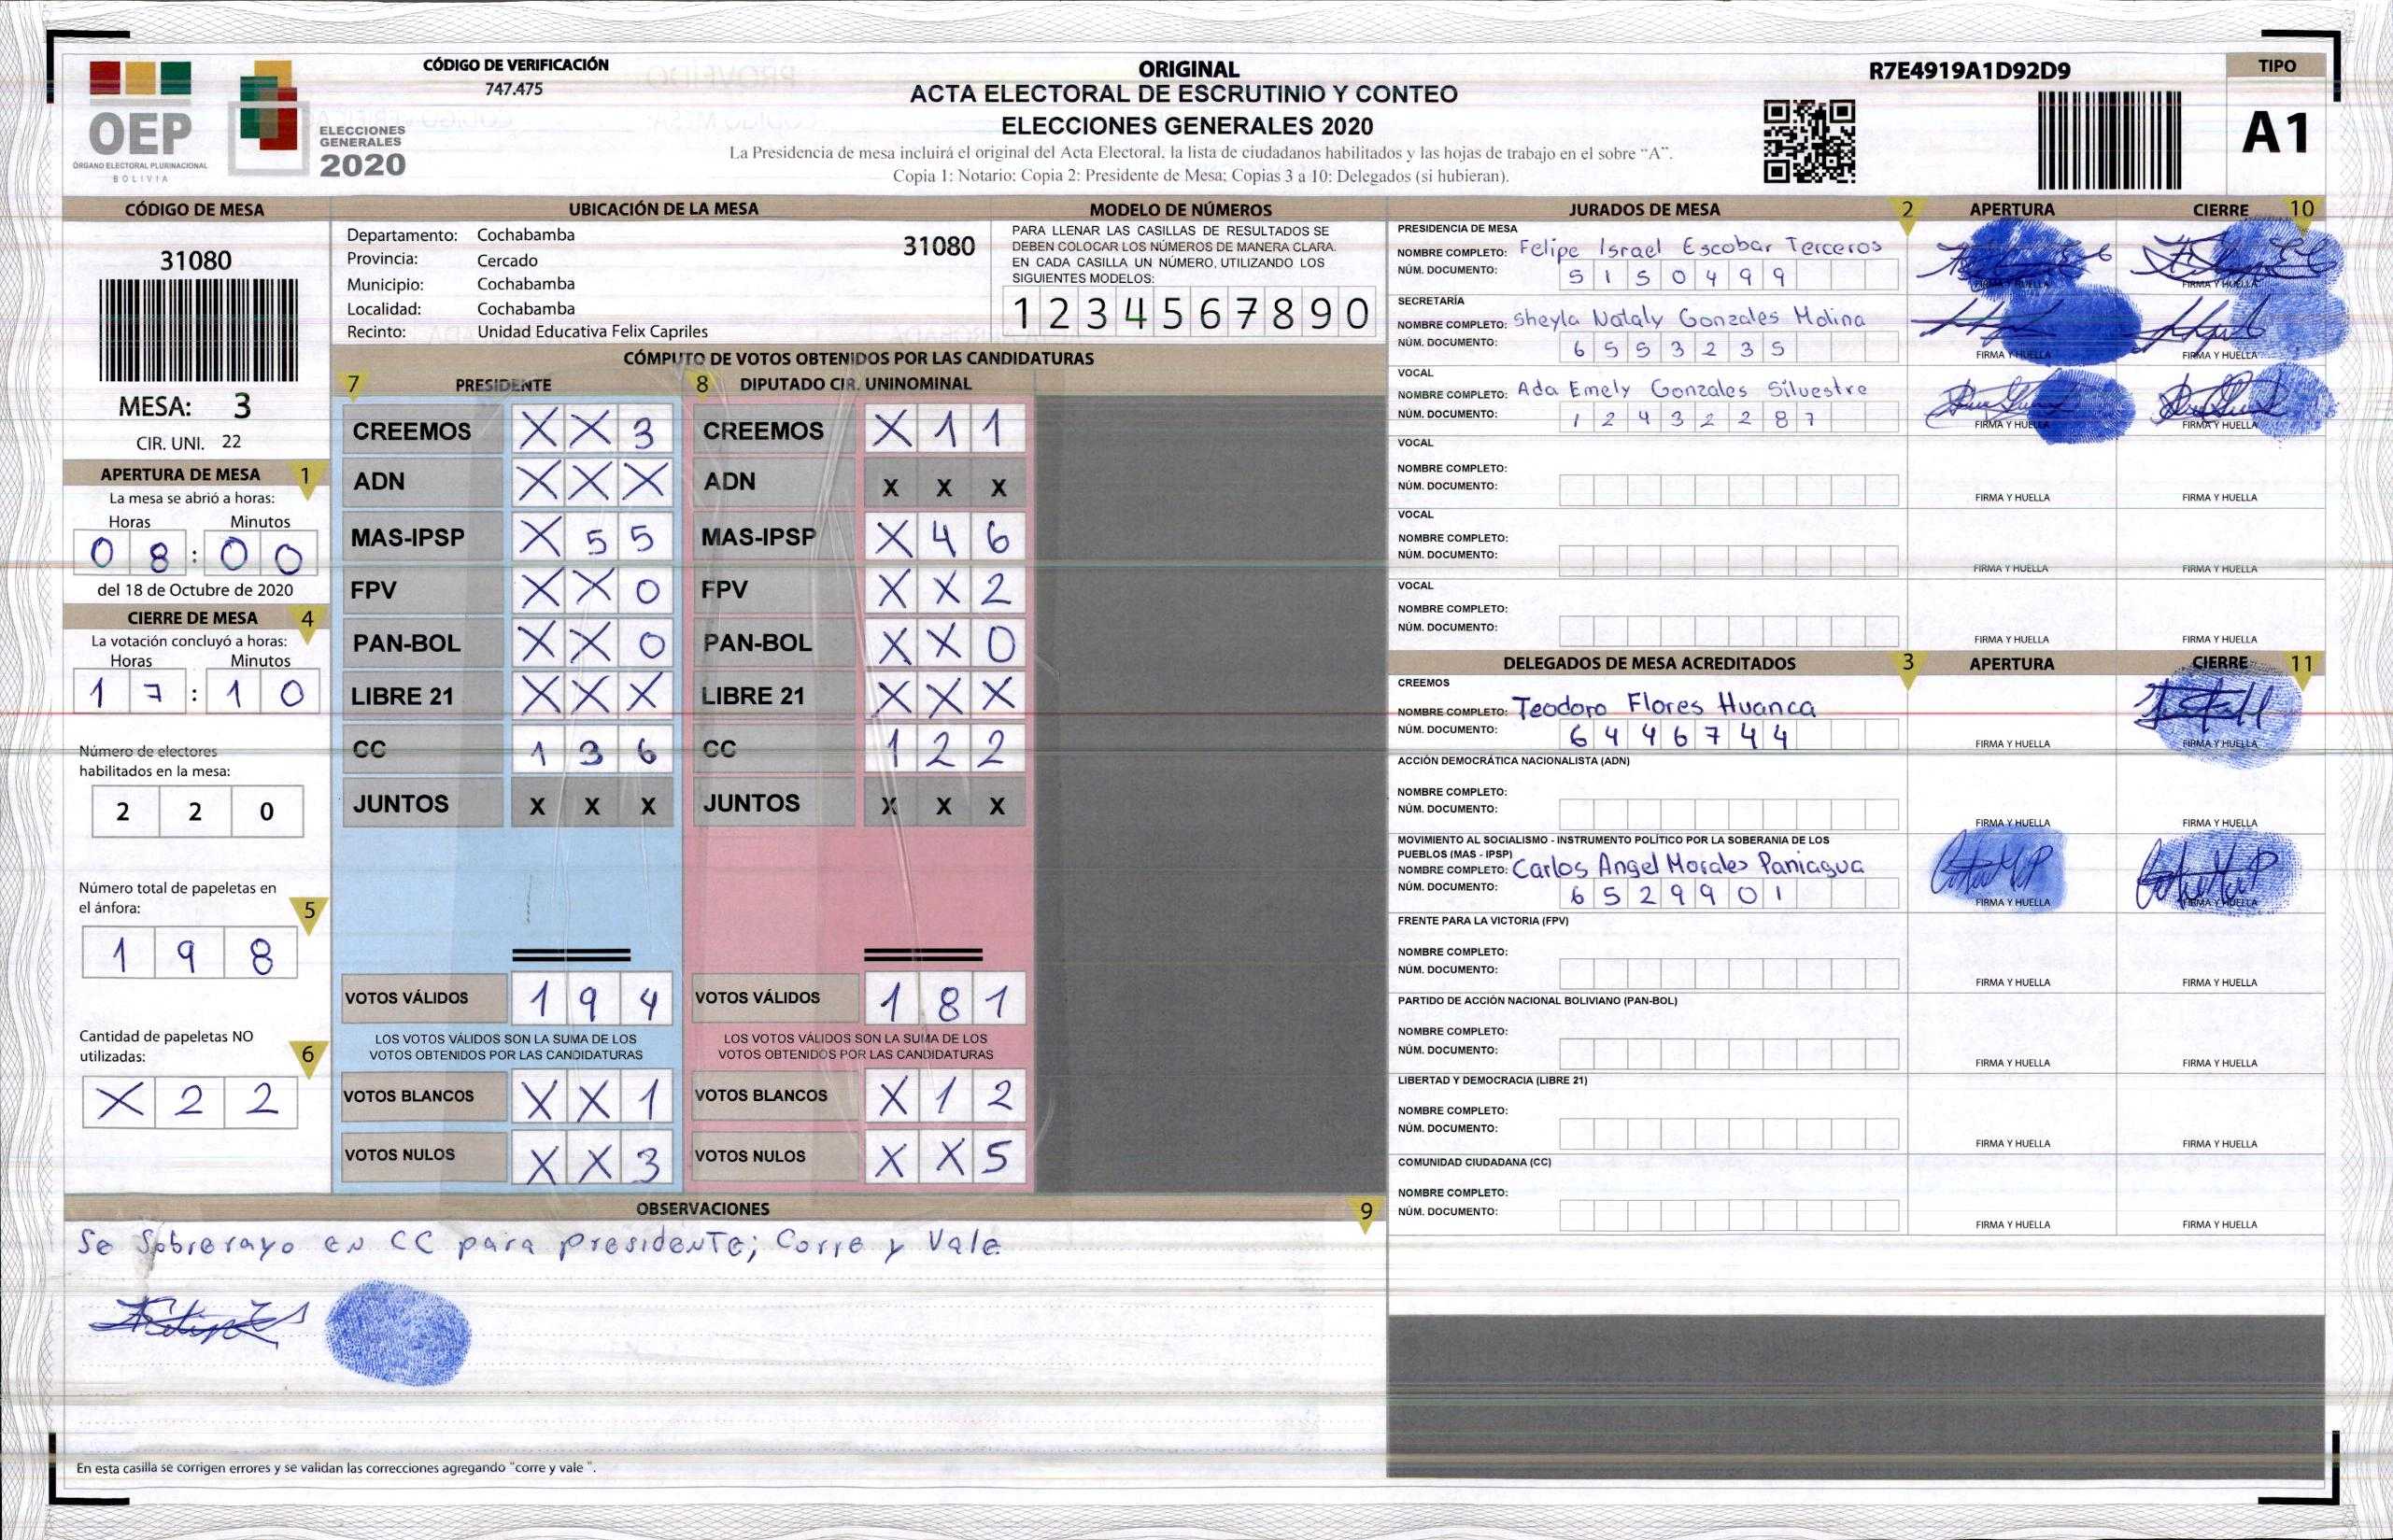 OEP
ÓRGANO ELECTORAL PLURINACIONAL
BOLIVIA
ELECCIONES
GENERALES
2020
CÓDIGO DE VERIFICACIÓN
747.475
ORIGINAL
ACTA ELECTORAL DE ESCRUTINIO Y CONTEO
ELECCIONES GENERALES 2020
La Presidencia de mesa incluirá el original del Acta Electoral, la lista de ciudadanos habilitados y las hojas de trabajo en el sobre “A”.
Copia 1: Notario; Copia 2: Presidente de Mesa; Copias 3 a 10: Delegados (si hubieran).
R7E4919A1D92D9
TIPO
A1
CÓDIGO DE MESA
31080
MESA: 3
CIR. UNI. 22
APERTURA DE MESA 1
La mesa se abrió a horas:
Horas Minutos
0 8 : 0 0
del 18 de Octubre de 2020
CIERRE DE MESA 4
La votación concluyó a horas:
Horas Minutos
1 7 : 1 0
Número de electores
habilitados en la mesa:
2 2 0
Número total de papeletas en
el ánfora: 5
1 9 8
Cantidad de papeletas NO
utilizadas: 6
X 2 2
UBICACIÓN DE LA MESA
Departamento: Cochabamba 31080
Provincia: Cercado
Municipio: Cochabamba
Localidad: Cochabamba
Recinto: Unidad Educativa Felix Capriles
MODELO DE NÚMEROS
PARA LLENAR LAS CASILLAS DE RESULTADOS SE
DEBEN COLOCAR LOS NÚMEROS DE MANERA CLARA.
EN CADA CASILLA UN NÚMERO, UTILIZANDO LOS
SIGUIENTES MODELOS:
1 2 3 4 5 6 7 8 9 0
CÓMPUTO DE VOTOS OBTENIDOS POR LAS CANDIDATURAS
7 PRESIDENTE 8 DIPUTADO CIR. UNINOMINAL
CREEMOS X X 3 CREEMOS X 1 1
ADN X X X ADN X X X
MAS-IPSP X 5 5 MAS-IPSP X 4 6
FPV X X 0 FPV X X 2
PAN-BOL X X 0 PAN-BOL X X 0
LIBRE 21 X X X LIBRE 21 X X X
CC 1 3 6 CC 1 2 2
JUNTOS X X X JUNTOS X X X
VOTOS VÁLIDOS 1 9 4 VOTOS VÁLIDOS 1 8 1
LOS VOTOS VÁLIDOS SON LA SUMA DE LOS LOS VOTOS VÁLIDOS SON LA SUMA DE LOS
VOTOS OBTENIDOS POR LAS CANDIDATURAS VOTOS OBTENIDOS POR LAS CANDIDATURAS
VOTOS BLANCOS X X 1 VOTOS BLANCOS X 1 2
VOTOS NULOS X X 3 VOTOS NULOS X X 5
OBSERVACIONES 9
Se Sobrerayo en CC para presidente; Corre y Vale
En esta casilla se corrigen errores y se validan las correcciones agregando "corre y vale ".
JURADOS DE MESA 2 APERTURA CIERRE 10
PRESIDENCIA DE MESA
NOMBRE COMPLETO: Felipe Israel Escobar Terceros
NÚM. DOCUMENTO: 5 1 5 0 4 9 9
FIRMA Y HUELLA FIRMA Y HUELLA
SECRETARÍA
NOMBRE COMPLETO: Sheyla Nataly Gonzales Molina
NÚM. DOCUMENTO: 6 5 5 3 2 3 5
FIRMA Y HUELLA FIRMA Y HUELLA
VOCAL
NOMBRE COMPLETO: Ada Emely Gonzales Silvestre
NÚM. DOCUMENTO: 1 2 4 3 2 2 8 7
FIRMA Y HUELLA FIRMA Y HUELLA
VOCAL
NOMBRE COMPLETO:
NÚM. DOCUMENTO:
FIRMA Y HUELLA FIRMA Y HUELLA
VOCAL
NOMBRE COMPLETO:
NÚM. DOCUMENTO:
FIRMA Y HUELLA FIRMA Y HUELLA
VOCAL
NOMBRE COMPLETO:
NÚM. DOCUMENTO:
FIRMA Y HUELLA FIRMA Y HUELLA
DELEGADOS DE MESA ACREDITADOS 3 APERTURA CIERRE 11
CREEMOS
NOMBRE COMPLETO: Teodoro Flores Huanca
NÚM. DOCUMENTO: 6 4 4 6 7 4 4
FIRMA Y HUELLA FIRMA Y HUELLA
ACCIÓN DEMOCRÁTICA NACIONALISTA (ADN)
NOMBRE COMPLETO:
NÚM. DOCUMENTO:
FIRMA Y HUELLA FIRMA Y HUELLA
MOVIMIENTO AL SOCIALISMO - INSTRUMENTO POLÍTICO POR LA SOBERANIA DE LOS
PUEBLOS (MAS - IPSP)
NOMBRE COMPLETO: Carlos Angel Morales Paniagua
NÚM. DOCUMENTO: 6 5 2 9 9 0 1
FIRMA Y HUELLA FIRMA Y HUELLA
FRENTE PARA LA VICTORIA (FPV)
NOMBRE COMPLETO:
NÚM. DOCUMENTO:
FIRMA Y HUELLA FIRMA Y HUELLA
PARTIDO DE ACCIÓN NACIONAL BOLIVIANO (PAN-BOL)
NOMBRE COMPLETO:
NÚM. DOCUMENTO:
FIRMA Y HUELLA FIRMA Y HUELLA
LIBERTAD Y DEMOCRACIA (LIBRE 21)
NOMBRE COMPLETO:
NÚM. DOCUMENTO:
FIRMA Y HUELLA FIRMA Y HUELLA
COMUNIDAD CIUDADANA (CC)
NOMBRE COMPLETO:
NÚM. DOCUMENTO:
FIRMA Y HUELLA FIRMA Y HUELLA